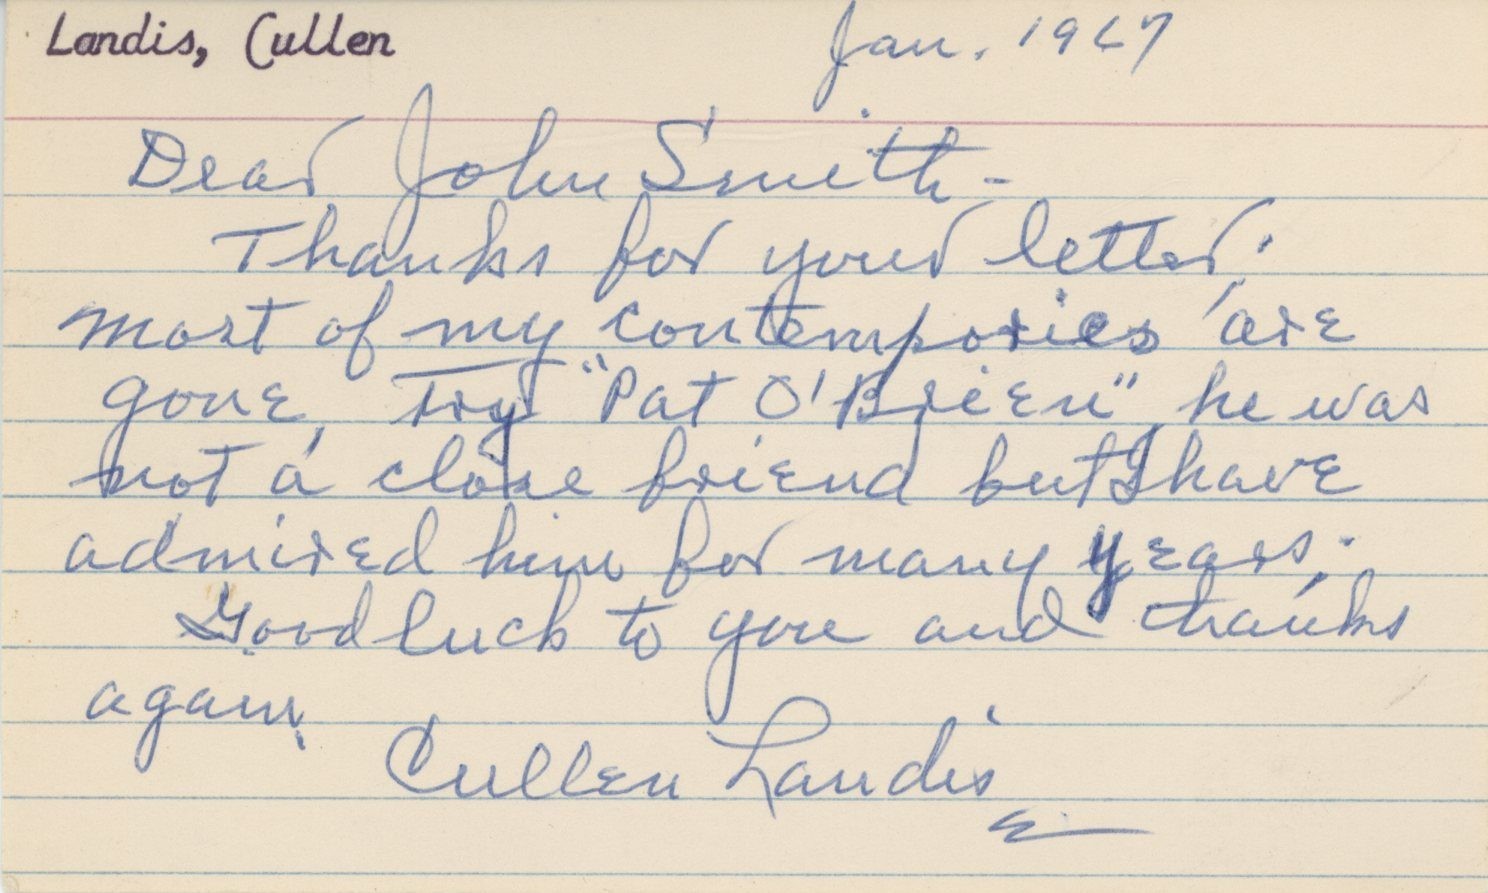 Landis, Cullen
Jan. 1967
Dear John Smith -
Thanks for your letter.
most of my contempories are
gone, Try "Pat O'Brien" he was
not a close friend but I have
admired him for many years.
Good luck to you and thanks
again.
Cullen Landis